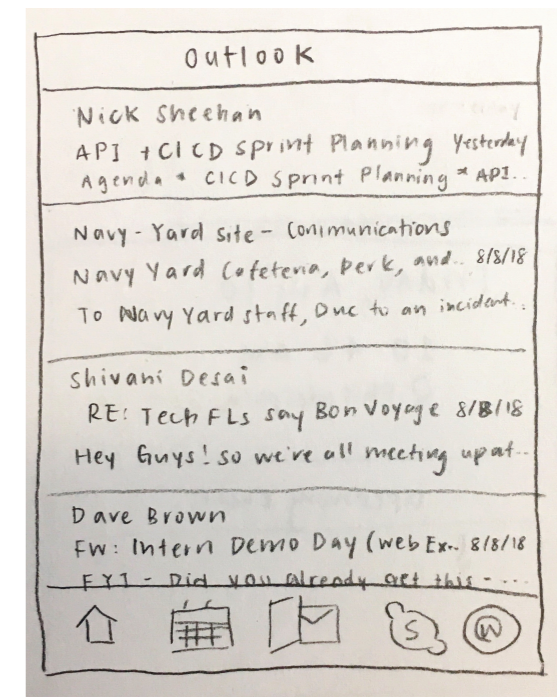 Outlook
Nick Sheehan
API + CICD Sprint Planning Yesterday
Agenda * CICD Sprint Planning * API..
Navy-Yard site - Communications
Navy Yard Cafeteria, Perk, and.. 8/8/18
To Navy Yard staff, Due to an incident..
Shivani Desai
RE: Tech FLs say Bon Voyage 8/8/18
Hey Guys! so we're all meeting up at..
Dave Brown
FW: Intern Demo Day (web Ex.. 8/8/18
FYI - Did you already get this - ...
S W